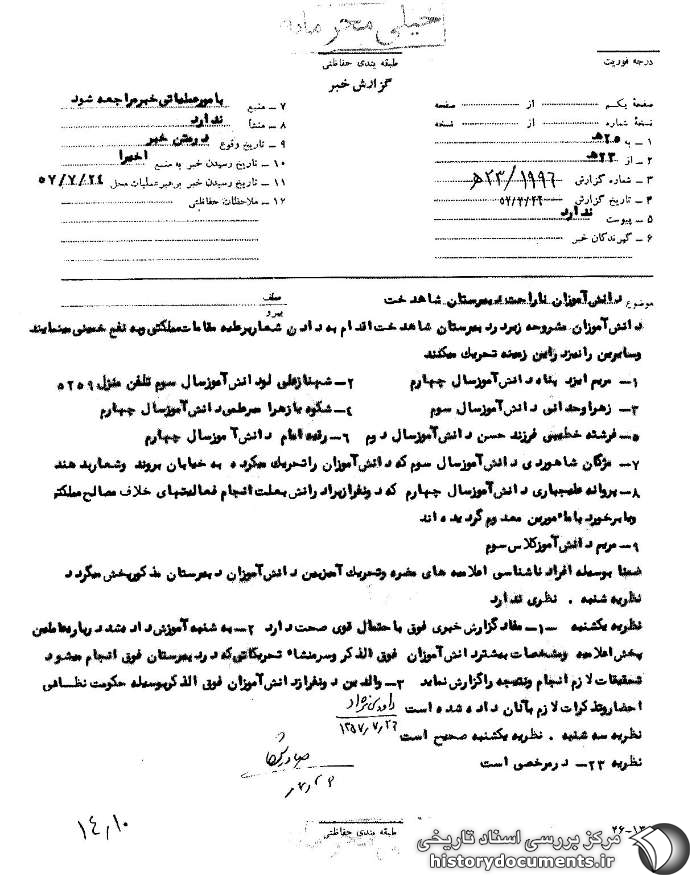 خیلی محرمانه
درجه فوریت
طبقه بندی حفاظتی
گزارش خبر
صفحه یکم از صفحه
نسخهٔ شماره از نسخه
۱ – به ۲۵ھ
۲ – از ۲۳ھ
۳ – شماره گزارش ۲۳/۱۹۹۶ھ
۴ – تاریخ گزارش
۵ – پیوست ندارد
۶ – گیرندگان خبر
۷ – منبع بامورعملیاتی خبرمراجعه شود
۸ – منشأ ندارد
۹ – تاریخ وقوع درمتن خبر
۱۰ – تاریخ رسیدن خبر به منبع اخیرا
۱۱ – تاریخ رسیدن خبر برهبرعملیات محل ۵۷/۷/۲۴
۱۲ – ملاحظات حفاظتی
موضوع دانش آموزان ناراحت دبیرستان شاهدخت
عطف
پیرو
دانش آموزان مشروحه زیردردبیرستان شاهدخت اقدام به دادن شعاربرعلیه مقامات مملکتی وبه نفع خمینی مینمایند
وسایرین رانیزدراین زمینه تحریک میکنند
۱– مریم ایزد پناه دانش آموزسال چهارم ۲– شهنازعلی لو دانش آموزسال سوم تلفن منزل ۵۲۵۹
۳– زهراوحدانی دانش آموزسال سوم ۴– شکوه یازهرا میرعلمی دانش آموزسال چهارم
۵– فرشته خطیبی فرزند حسن دانش آموزسال دوم ۶– رقیه امام دانش آموزسال چهارم
۷– مژگان شاهوردی دانش آموزسال سوم که دانش آموزان راتحریک میکرده به خیابان بروند وشعاربدهند
۸– پروانه علیجباری دانش آموزسال چهارم که دونفرازبرادرانش بعلت انجام فعالیتهای خلاف مصالح مملکتی
ویابرخورد بامأمورین معدوم گردیده اند
۹– مریم دانش آموزکلاس سوم
ضمنا بوسیله افراد ناشناسی اعلامیه های مضره وتحریک آمیزبین دانش آموزان دبیرستان مذکورپخش میگردد
نظریه شنبه . نظری ندارد
نظریه یکشنبه ۱– مفادگزارش خبری فوق باحتمال قوی صحت دارد ۲– به شنبه آموزش داده شد درباره عاملین
پخش اعلامیه ومشخصات بیشتردانش آموزان فوق الذکر وسرمنشاء تحریکاتی که دردبیرستان فوق انجام میشود
تحقیقات لازم انجام ونتیجه راگزارش نماید ۳– والدین دونفرازدانش آموزان فوق الذکربوسیله حکومت نظامی
احضاروتذکرات لازم بآنان داده شده است
۱۳۵۷/۷/۲۶
نظریه سه شنبه . نظریه یکشنبه صحیح است
نظریه ۲۳– درمرخصی است
۱۴/۱۰
طبقه بندی حفاظتی
مرکز بررسی اسناد تاریخی
historydocuments.ir